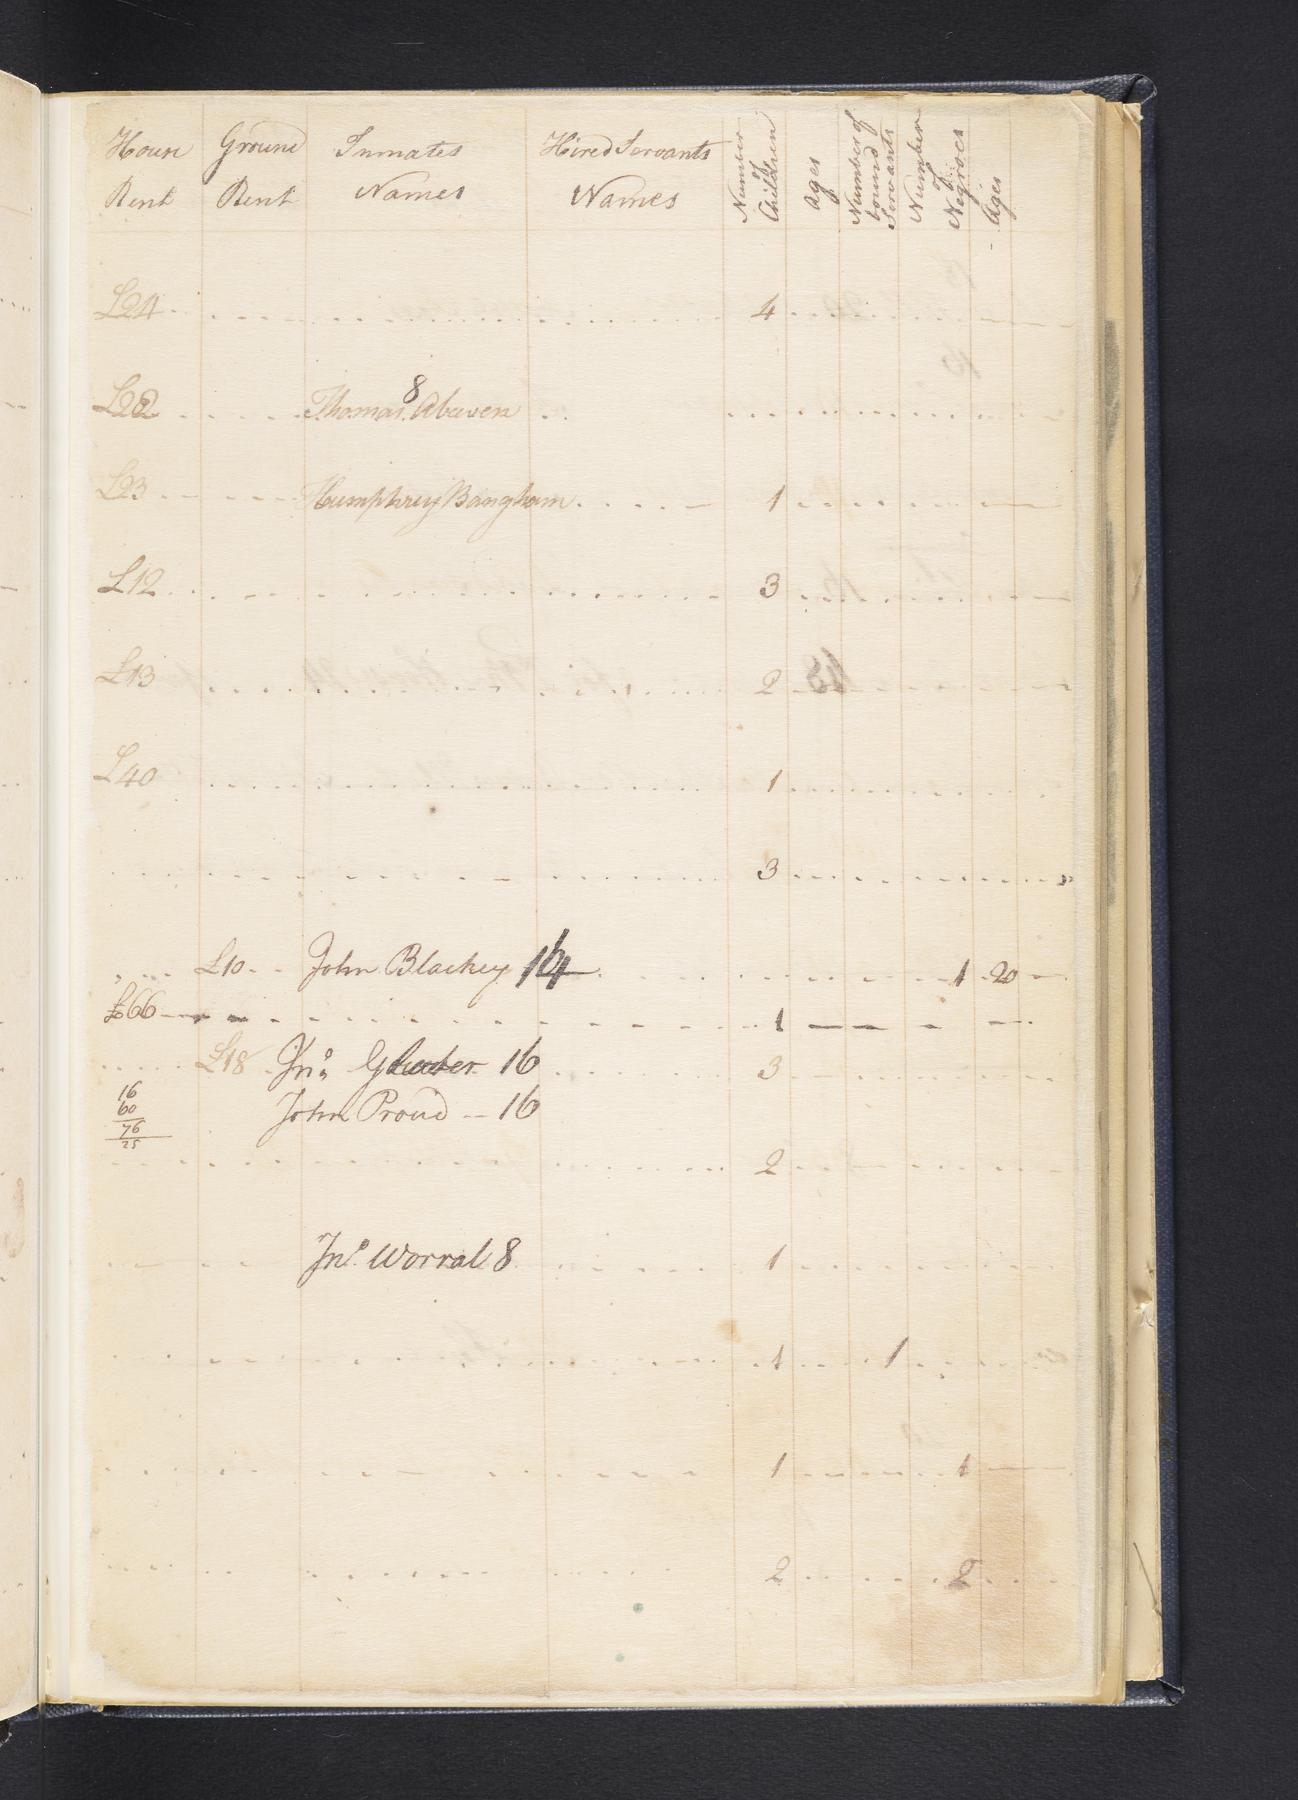 House Rent Ground Rent Inmates Names Hired Servants Names Number of Children Ages Number of bound Servants Number of Negroes Ages
£24 4
£22 Thomas 8
£23 Humphrey Bangham 1
£12 3
£13 2
£40 1
3
£10 John Blackey 1 20
£66 1
£18 Jno. 16 3
16 John Proud 16
60
76
25
2
Jno. Worral 8 1
1 1
1 1
2 2